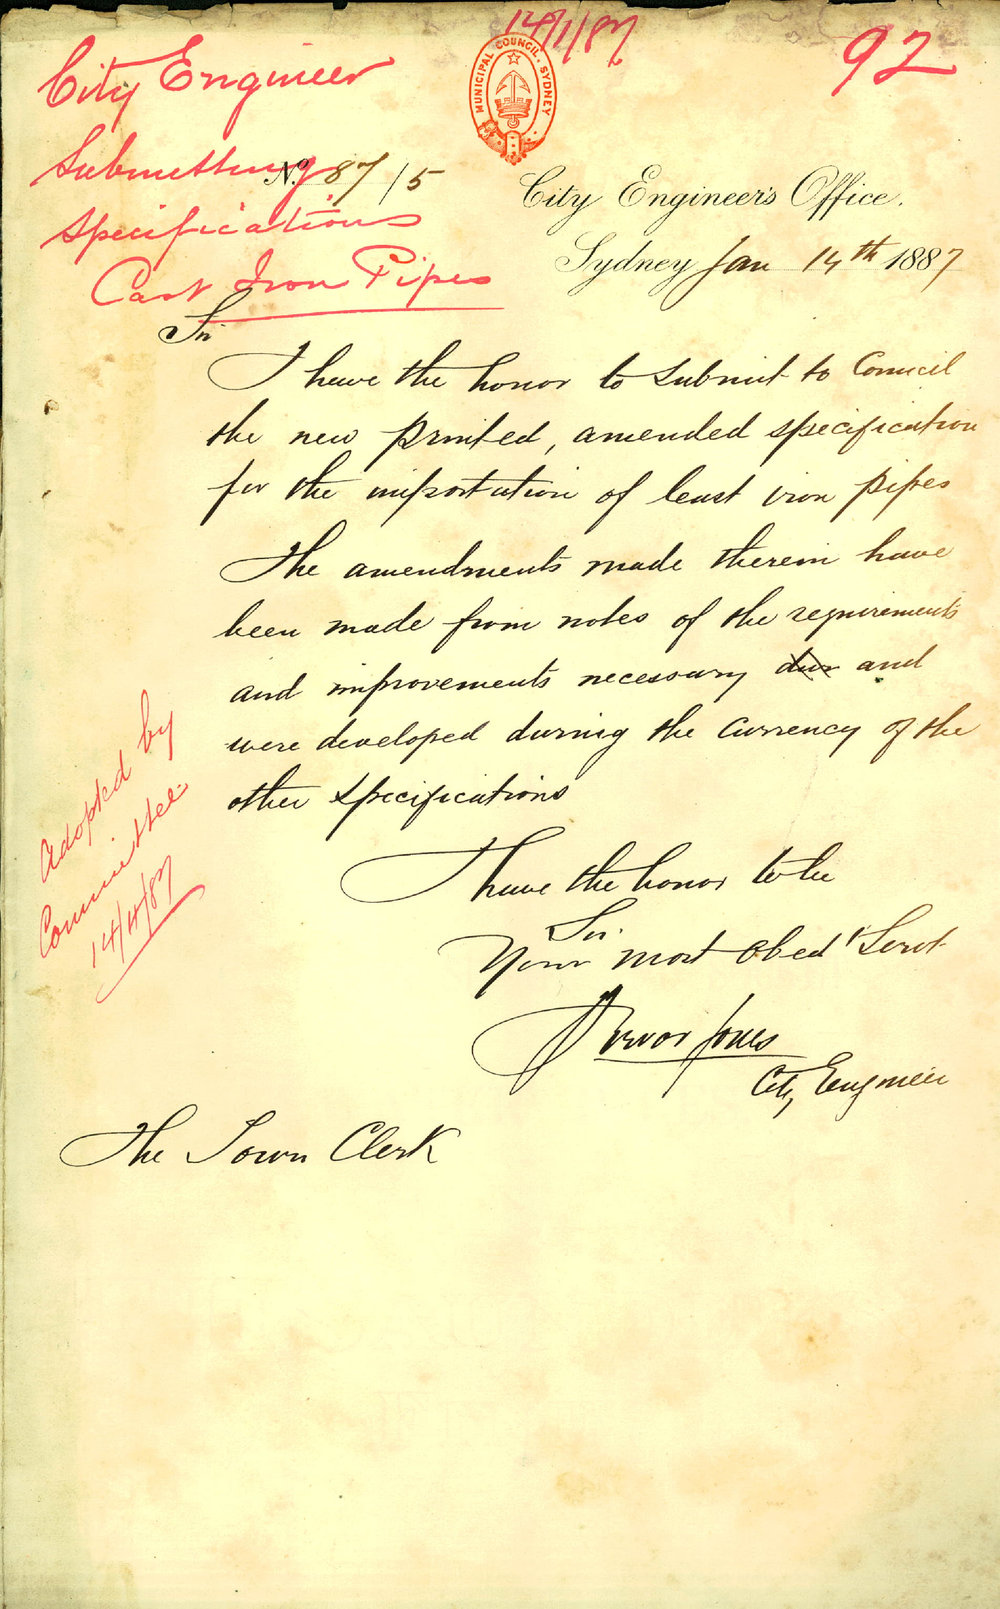 14/1/87
92
MUNICIPAL COUNCIL. SYDNEY
City Engineer
Submitting
Specifications
Cast Iron Pipes
No. 87/5
City Engineer's Office.
Sydney Jan 14th 1887
Sir
I have the honor to submit to Council
the new printed, amended specification
for the importation of Cast iron pipes
The amendments made therein have
been made from notes of the requirements
and improvements necessary dur and
were developed during the currency of the
other specifications
I have the honor to be
Sir
Your most obed't Servt
Trevor Jones
City Engineer
The Town Clerk
Adopted by
Committee
14/4/87